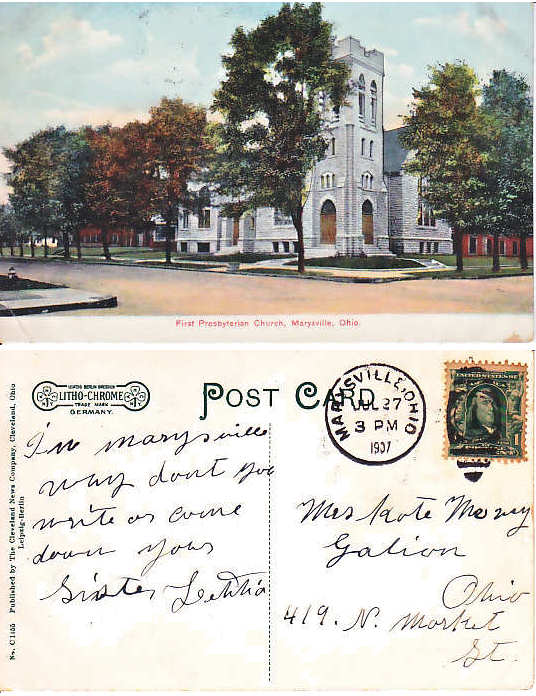 First Presbyterian Church, Marysville, Ohio.
LEIPZIG BERLIN DRESDEN
LITHO-CHROME
TRADE MARK
GERMANY.
POST CARD
MARYSVILLE, OHIO
JUL 27
3 PM
1907
UNITED STATES OF
No. C1155 Published by The Cleveland News Company, Cleveland, Ohio
Leipzig-Berlin
I'm marysville
why dont you
write or come
down yours
Sister Letitia
Mrs Kate
Galion
Ohio
419. N. Market
St.